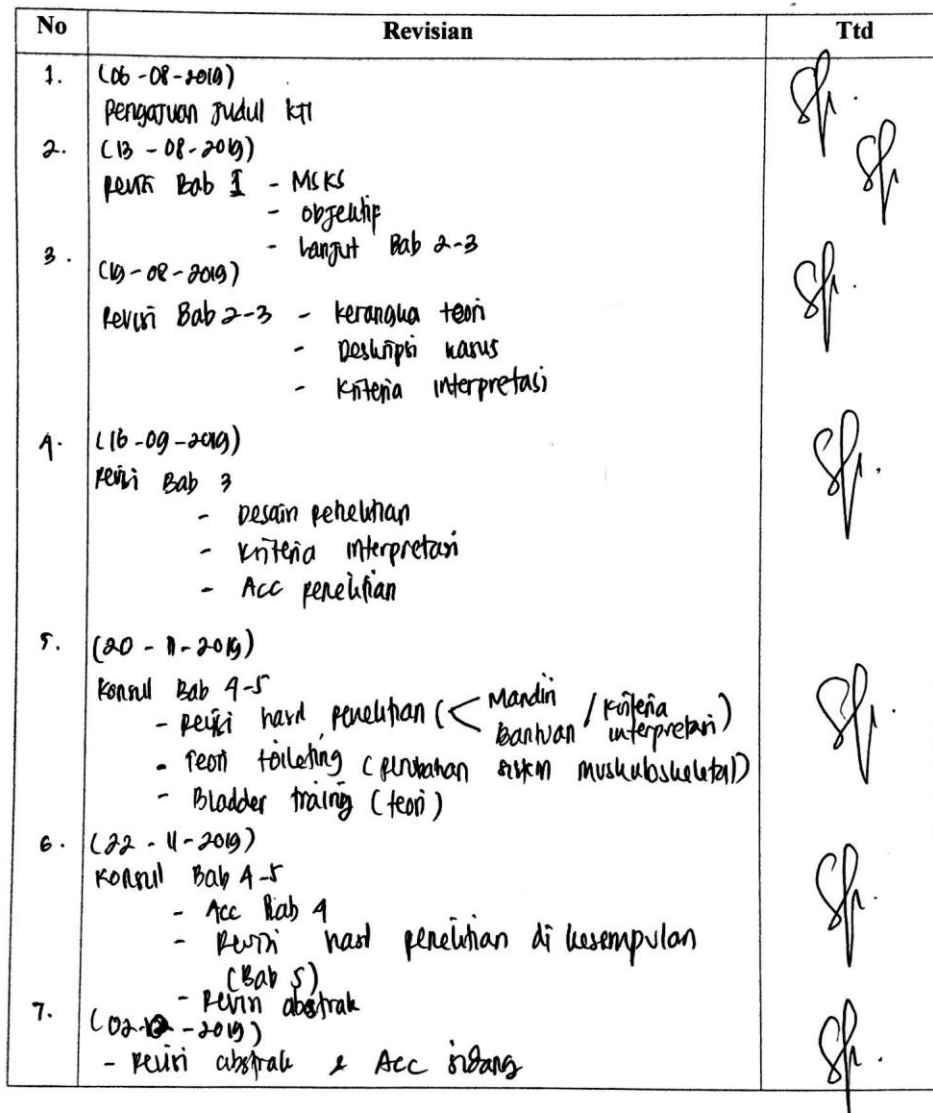 No Revisian Ttd
1. (06-08-2019)
Pengajuan Judul KTI
2. (13-08-2019)
Revisi Bab I - MSKS
- Objektif
- Lanjut Bab 2-3
3. (19-08-2019)
Revisi Bab 2-3 - kerangka teori
- Deskripsi kasus
- Kriteria interpretasi
4. (16-09-2019)
Revisi Bab 3
- Desain penelitian
- Kriteria interpretasi
- Acc penelitian
5. (20-11-2019)
Konsul Bab 4-5
- Revisi hasil penelitian (< Mandiri Bantuan / Kriteria interpretasi)
- Teori toileting (perubahan sistem muskuloskeletal)
- Bladder traing (teori)
6. (22-11-2019)
Konsul Bab 4-5
- Acc Bab 4
- Revisi hasil penelitian di kesempulan
(Bab 5)
- Revisi abstrak
7. (02-12-2019)
- Revisi abstrak & Acc sidang